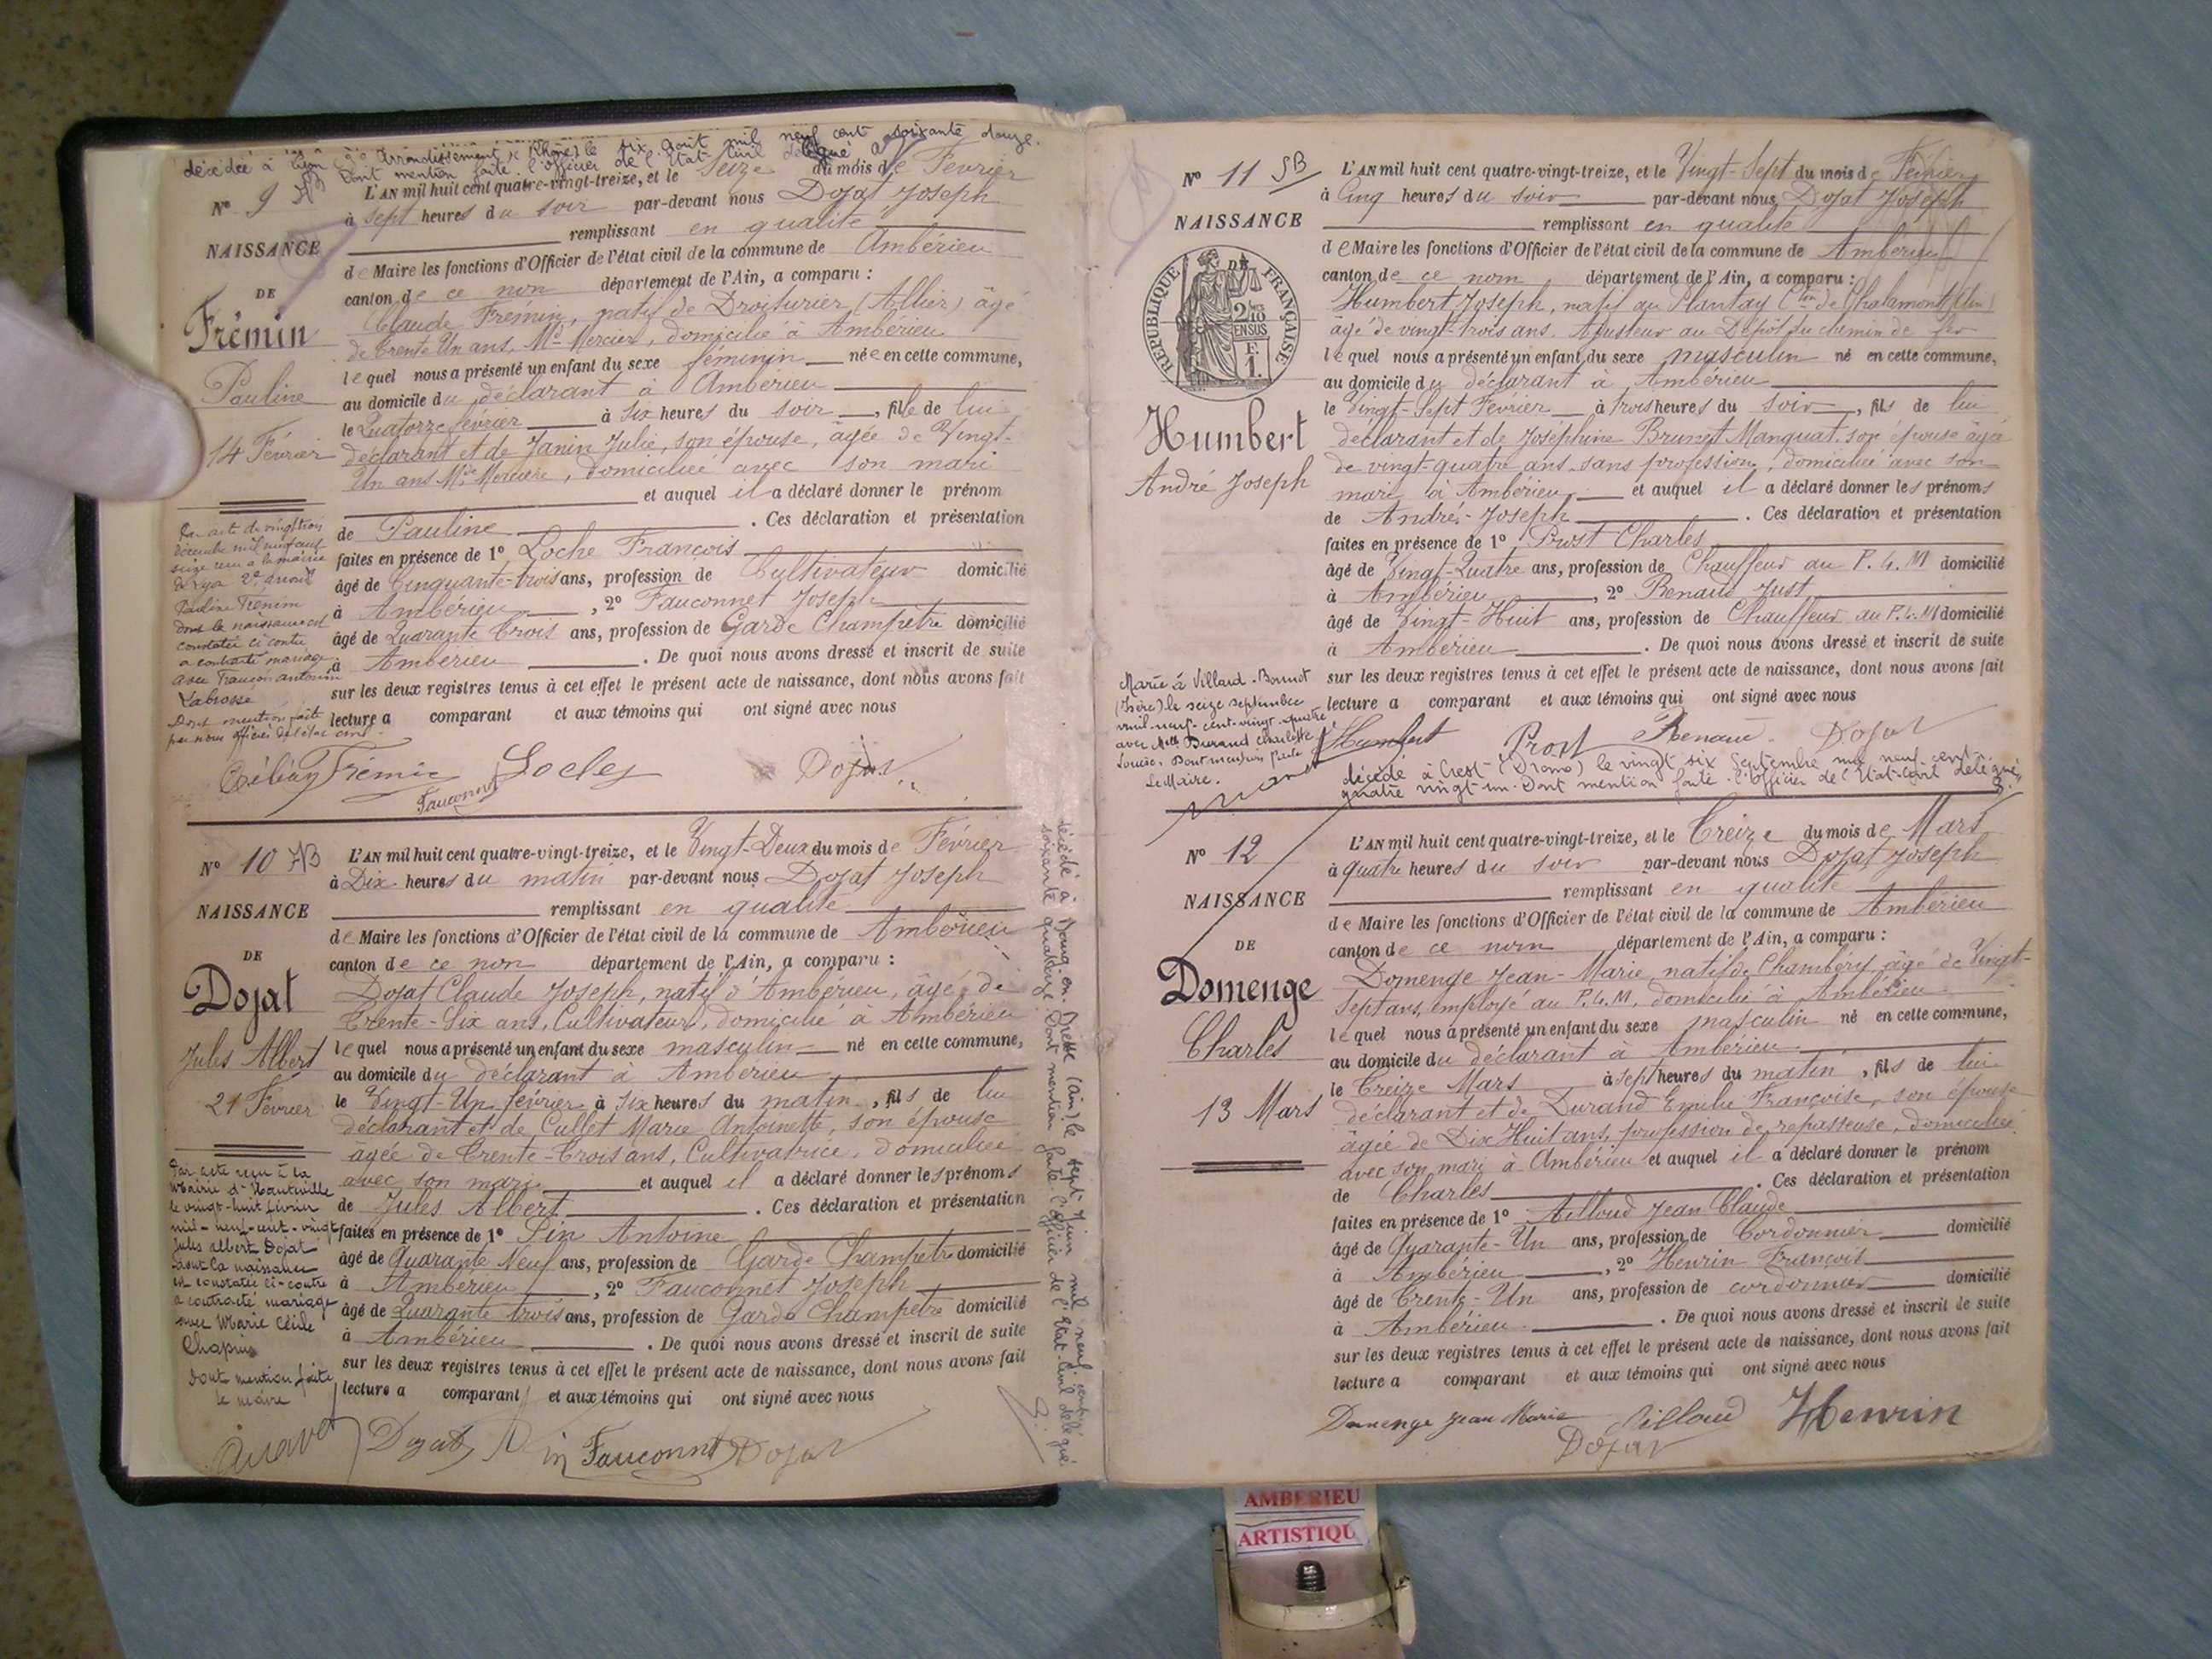 décédée à Lyon 3e Arrondissement (Rhône) le six août mil neuf cent soixante douze.
Dont mention faite. l'Officier de l'Etat-Civil délégué
N° 9
NAISSANCE
DE
Frémin
Pauline
14 Février
L'AN mil huit cent quatre-vingt-treize, et le Seize du mois de Février
à sept heures du soir par-devant nous Dojat Joseph
remplissant en qualité
de Maire les fonctions d'Officier de l'état civil de la commune de Ambérieu
canton de ce nom département de l'Ain, a comparu :
Claude Frémin, natif de Droiturier (Allier) âgé
de Trente Un ans, Md Mercier, domicilié à Ambérieu
lequel nous a présenté un enfant du sexe féminin née en cette commune,
au domicile du déclarant à Ambérieu
le Quatorze février à Six heures du soir, fille de lui
déclarant et de Janin Julie, son épouse, âgée de Vingt-
Un ans Mde Mercière, domiciliée avec son mari
et auquel il a déclaré donner le prénom
de Pauline. Ces déclaration et présentation
faites en présence de 1° Loche François
âgé de Cinquante-trois ans, profession de Cultivateur domicilié
à Ambérieu, 2° Fauconnet Joseph
âgé de Quarante trois ans, profession de Garde Champêtre domicilié
à Ambérieu. De quoi nous avons dressé et inscrit de suite
sur les deux registres tenus à cet effet le présent acte de naissance, dont nous avons fait
lecture a comparant et aux témoins qui ont signé avec nous
Par acte du vingt trois
décembre mil neuf cent
seize reçu à la mairie
de Lyon 2e arront
Pauline Frémin
dont la naissance est
constatée ci contre
a contracté mariage
avec François antonin
Labrosse
Dont mention faite
par nous officier de l'état civil.
Frémin Fauconnet Dojat
N° 10
NAISSANCE
DE
Dojat
Jules Albert
21 Février
L'AN mil huit cent quatre-vingt-treize, et le Vingt-Deux du mois de Février
à Dix heures du matin par-devant nous Dojat Joseph
remplissant en qualité
de Maire les fonctions d'Officier de l'état civil de la commune de Ambérieu
canton de ce nom département de l'Ain, a comparu :
Dojat Claude Joseph, natif d'Ambérieu, âgé de
Trente-Six ans, Cultivateur, domicilié à Ambérieu
lequel nous a présenté un enfant du sexe masculin né en cette commune,
au domicile du déclarant à Ambérieu
le Vingt-Un février à six heures du matin, fils de lui
déclarant et de Cullet Marie Antoinette, son épouse
âgée de Trente-Trois ans, Cultivatrice, domiciliée
avec son mari et auquel il a déclaré donner les prénoms
de Jules Albert. Ces déclaration et présentation
faites en présence de 1° Pin Antoine
âgé de Quarante Neuf ans, profession de Garde Champêtre domicilié
à Ambérieu, 2° Fauconnet Joseph
âgé de Quarante trois ans, profession de Garde Champêtre domicilié
à Ambérieu. De quoi nous avons dressé et inscrit de suite
sur les deux registres tenus à cet effet le présent acte de naissance, dont nous avons fait
lecture a comparant et aux témoins qui ont signé avec nous
Par acte reçu à la
Mairie d'Hauteville
le vingt-huit février
mil-neuf-cent-vingt
Jules Albert Dojat
dont la naissance
est constatée ci-contre
a contracté mariage
avec Marie Cécile
Chapuis
Dont mention faite
le maire
Dojat Pin Fauconnet Dojat
décédé à Bourg-en-Bresse (Ain) le sept juin mil neuf cent
soixante quatorze. Dont mention faite. l'Officier de l'Etat-Civil délégué
N° 11
NAISSANCE
RÉPUBLIQUE FRANÇAISE
2/10 EN SUS
F.
1.
Humbert
André Joseph
L'AN mil huit cent quatre-vingt-treize, et le Vingt-Sept du mois de Février
à Cinq heures du soir par-devant nous Dojat Joseph
remplissant en qualité
de Maire les fonctions d'Officier de l'état civil de la commune de Ambérieu
canton de ce nom département de l'Ain, a comparu :
Humbert Joseph, natif du Plantay (Con de Chalamont, Ain)
âgé de vingt-trois ans, Ajusteur au Dépôt du chemin de fer
lequel nous a présenté un enfant du sexe masculin né en cette commune,
au domicile du déclarant à Ambérieu
le Vingt-Sept Février à trois heures du soir, fils de lui
déclarant et de Joséphine Brunet Manquat, son épouse âgée
de vingt-quatre ans sans profession, domiciliée avec son
mari à Ambérieu et auquel il a déclaré donner les prénoms
de André-Joseph. Ces déclaration et présentation
faites en présence de 1° Prost Charles
âgé de Vingt-Quatre ans, profession de Chauffeur au P.L.M domicilié
à Ambérieu, 2° Renaud Just
âgé de Vingt-Huit ans, profession de Chauffeur au P.L.M domicilié
à Ambérieu. De quoi nous avons dressé et inscrit de suite
sur les deux registres tenus à cet effet le présent acte de naissance, dont nous avons fait
lecture a comparant et aux témoins qui ont signé avec nous
Marié à Villard-Bonnot
(Isère) le seize septembre
mil-neuf-cent-vingt-quatre
avec Melle Durand Charlotte
Louise. Dont mention faite
Le Maire.
Humbert Prost Renaud Dojat
décédé à Crest (Drome) le vingt six Septembre mil neuf cent
quatre vingt-un. Dont mention faite. l'Officier de l'Etat-Civil délégué,
N° 12
NAISSANCE
DE
Domenge
Charles
13 Mars
L'AN mil huit cent quatre-vingt-treize, et le Treize du mois de Mars
à quatre heures du soir par-devant nous Dojat Joseph
remplissant en qualité
de Maire les fonctions d'Officier de l'état civil de la commune de Ambérieu
canton de ce nom département de l'Ain, a comparu :
Domenge Jean-Marie, natif de Chambéry, âgé de Vingt-
Sept ans, employé au P.L.M, domicilié à Ambérieu
lequel nous a présenté un enfant du sexe masculin né en cette commune,
au domicile du déclarant à Ambérieu
le Treize Mars à sept heures du matin, fils de lui
déclarant et de Durand Emilie Françoise, son épouse
âgée de Dix Huit ans, profession de repasseuse, domiciliée
avec son mari à Ambérieu et auquel il a déclaré donner le prénom
de Charles. Ces déclaration et présentation
faites en présence de 1° Ailloud Jean Claude
âgé de Quarante-Un ans, profession de Cordonnier domicilié
à Ambérieu, 2° Henrin François
âgé de Trente-Un ans, profession de cordonnier domicilié
à Ambérieu. De quoi nous avons dressé et inscrit de suite
sur les deux registres tenus à cet effet le présent acte de naissance, dont nous avons fait
lecture a comparant et aux témoins qui ont signé avec nous
Domenge Jean Marie Ailloud Henrin
Dojat
AMBERIEU
ARTISTIQU